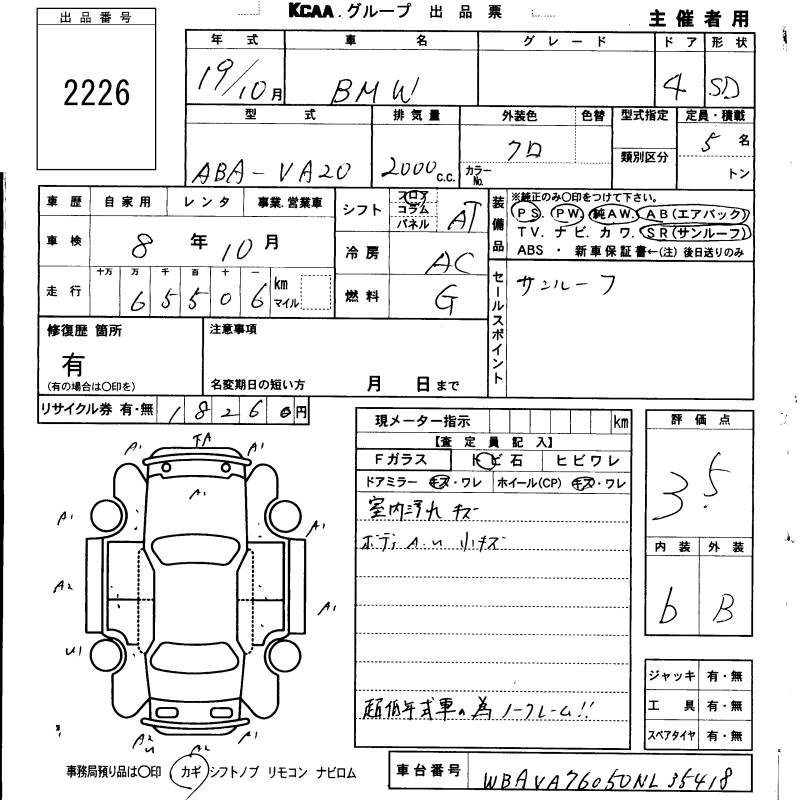 KCAA.グループ 出品票
主催者用
出品番号
2226
年式 車名 グレード ドア 形状
19/10月 BMW 4 SD
型式 排気量 外装色 色替 型式指定 定員・積載
ABA-VA20 2000c.c. クロ カラーNo. 類別区分 5名 トン
車歴 自家用 レンタ 事業.営業車
車検 8年10月
走行 十万 万 千 百 十 一
65506 km マイル
シフト フロア コラム パネル AT
冷房 AC
燃料 G
装備品
※純正のみ〇印をつけて下さい。
PS. PW. 純AW. AB(エアバック)
TV. ナビ. カワ. SR(サンルーフ)
ABS ・ 新車保証書←(注)後日送りのみ
セールスポイント
サンルーフ
修復歴 箇所
有
(有の場合は〇印を)
注意事項
名変期日の短い方 月 日まで
リサイクル券 有・無 18260円
現メーター指示 km
【査定員記入】
Fガラス トビ石 ヒビワレ
ドアミラー キズ・ワレ ホイール(CP) キズ・ワレ
室内汚れ キズ
ボディ A.U 小キズ
超低年式車の為 ノークレーム!!
評価点
3.5
内装 外装
b B
ジャッキ 有・無
工具 有・無
スペアタイヤ 有・無
A1 A1
A1
A1 A1
A2 A1
U1
A2 U A2 A1
事務局預り品は〇印 カギ シフトノブ リモコン ナビロム
車台番号 WBAVA76050NL35418